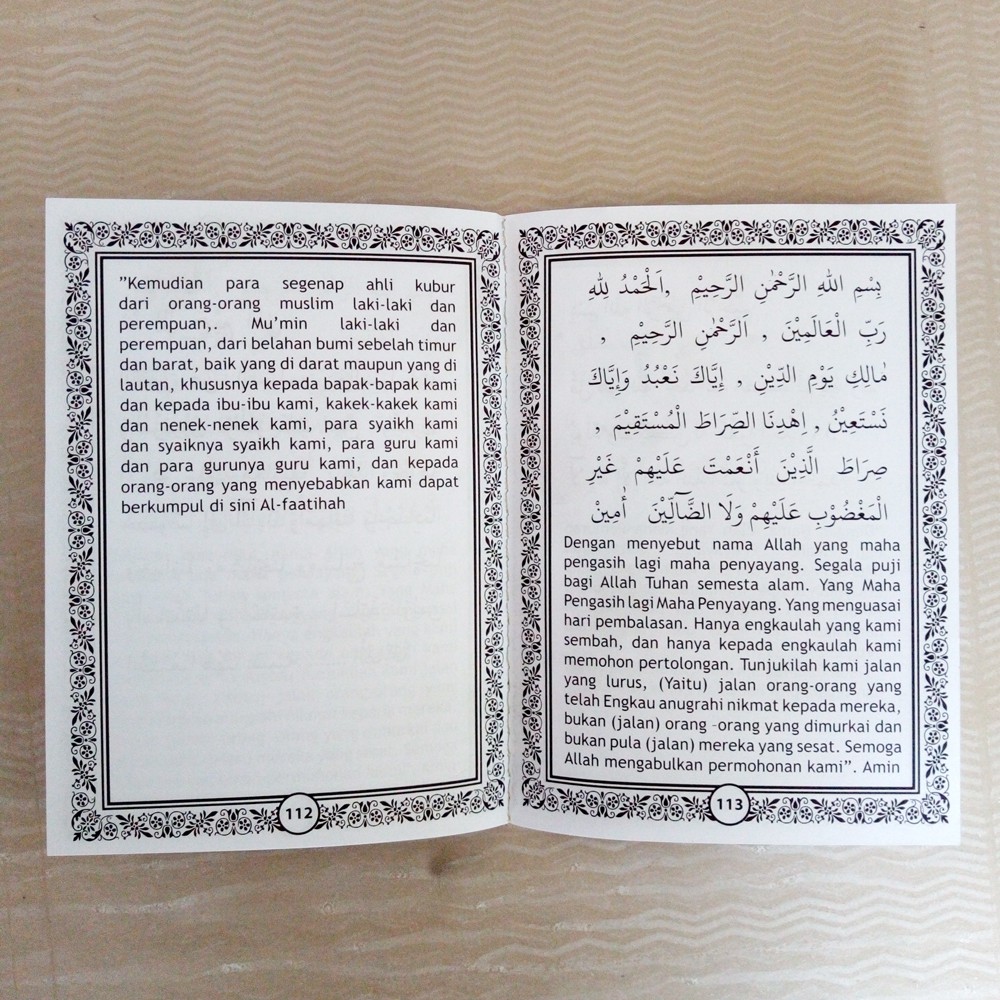 ”Kemudian para segenap ahli kubur
dari orang-orang muslim laki-laki dan
perempuan,. Mu’min laki-laki dan
perempuan, dari belahan bumi sebelah timur
dan barat, baik yang di darat maupun yang di
lautan, khususnya kepada bapak-bapak kami
dan kepada ibu-ibu kami, kakek-kakek kami
dan nenek-nenek kami, para syaikh kami
dan syaiknya syaikh kami, para guru kami
dan para gurunya guru kami, dan kepada
orang-orang yang menyebabkan kami dapat
berkumpul di sini Al-faatihah
112
بِسْمِ اللهِ الرَّحْمٰنِ الرَّحِيْمِ ,اَلْحَمْدُ لِلهِ
رَبِّ الْعَالَمِيْنَ , اَلرَّحْمٰنِ الرَّحِيْمِ ,
مٰالِكِ يَوْمِ الدِّيْنِ , إِيَّاكَ نَعْبُدُ وَإِيَّاكَ
نَسْتَعِيْنُ , اِهْدِنَا الصِّرَاطَ الْمُسْتَقِيْمَ ,
صِرَاطَ الَّذِيْنَ أَنْعَمْتَ عَلَيْهِمْ غَيْرِ
الْمَغْضُوْبِ عَلَيْهِمْ وَلَا الضَّآلِّيْنَ أٰمِيْنْ
Dengan menyebut nama Allah yang maha
pengasih lagi maha penyayang. Segala puji
bagi Allah Tuhan semesta alam. Yang Maha
Pengasih lagi Maha Penyayang. Yang menguasai
hari pembalasan. Hanya engkaulah yang kami
sembah, dan hanya kepada engkaulah kami
memohon pertolongan. Tunjukilah kami jalan
yang lurus, (Yaitu) jalan orang-orang yang
telah Engkau anugrahi nikmat kepada mereka,
bukan (jalan) orang –orang yang dimurkai dan
bukan pula (jalan) mereka yang sesat. Semoga
Allah mengabulkan permohonan kami”. Amin
113